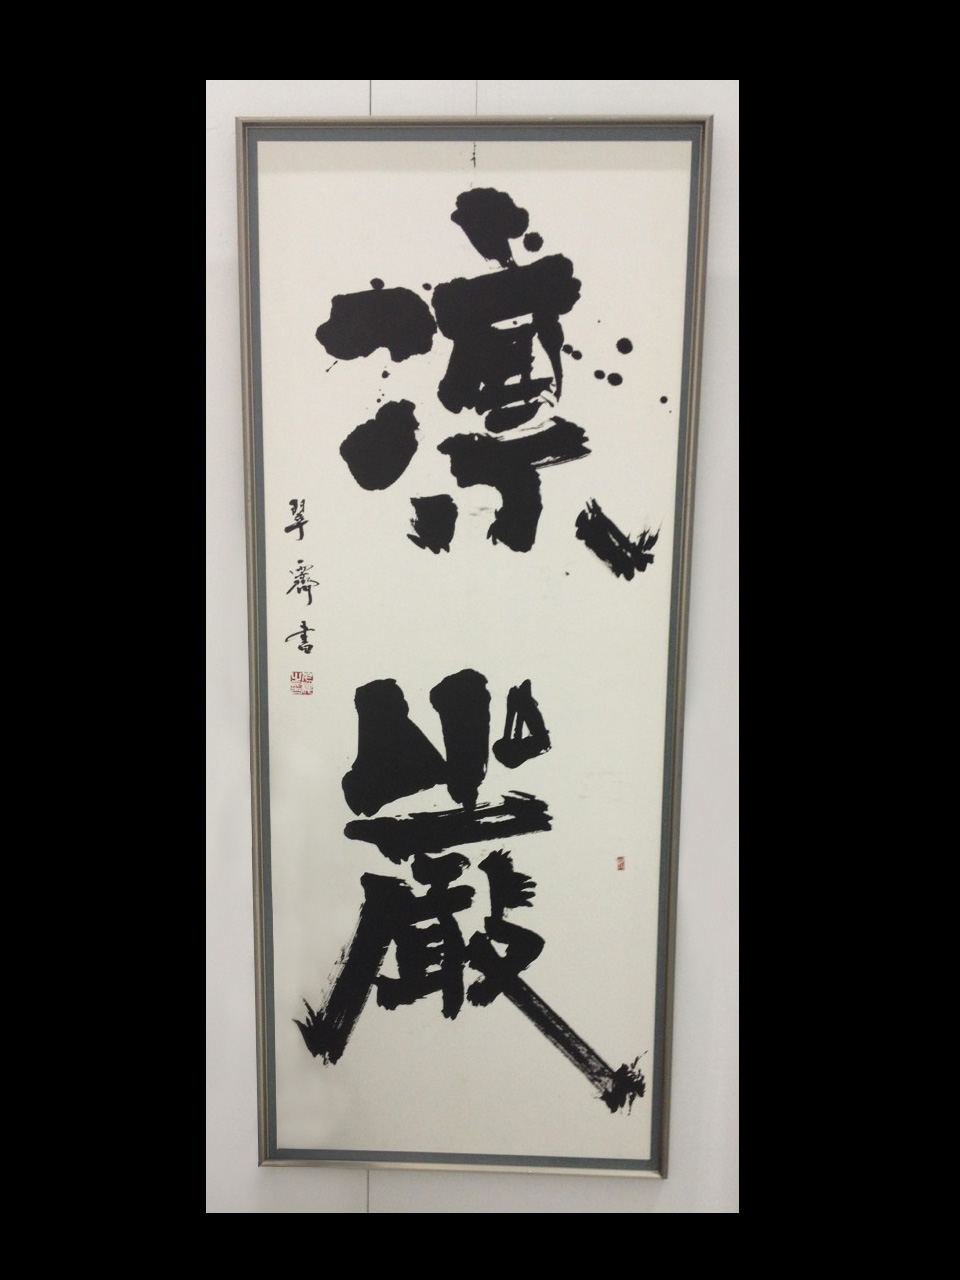 凛巖
翠齋書